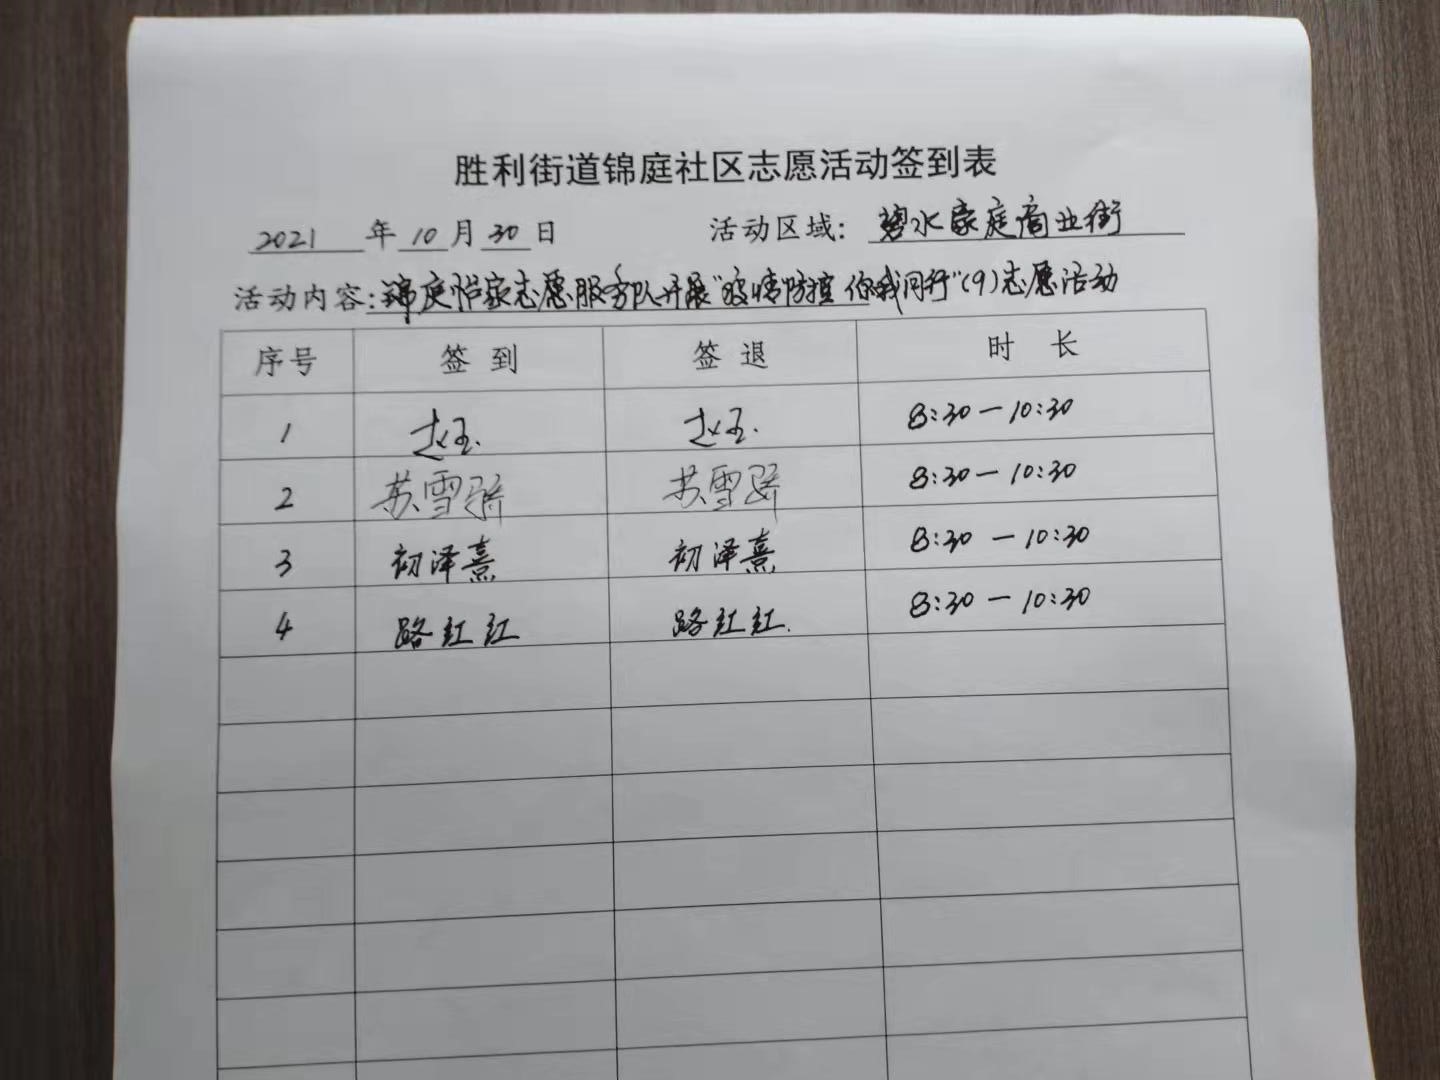 胜利街道锦庭社区志愿活动签到表
2021 年 10 月 30 日 活动区域: 碧水家庭商业街
活动内容:锦庭怡家志愿服务队开展"疫情防控 你我同行"(9)志愿活动
序号 签 到 签 退 时 长
1 赵玉. 赵玉. 8:30-10:30
2 苏雪骄 苏雪骄 8:30-10:30
3 初泽熹 初泽熹 8:30-10:30
4 路红红 路红红. 8:30-10:30